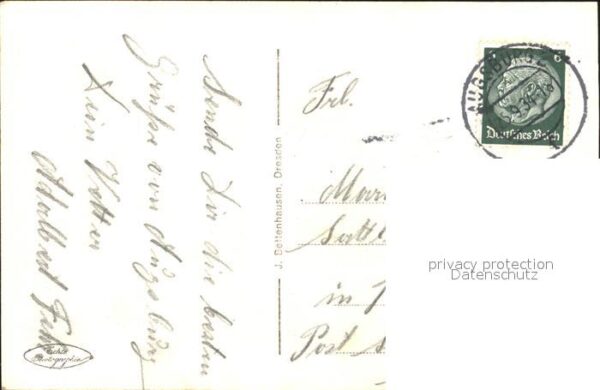 Sende Dir die besten
Grüße von Augsburg
Dein Vetter
Adalbert
Echte
Photographie
J. Bettenhausen, Dresden
Frl.
Mar
Satt
in
Post
AUGSBURG 2
6
Deutsches Reich
privacy protection
Datenschutz